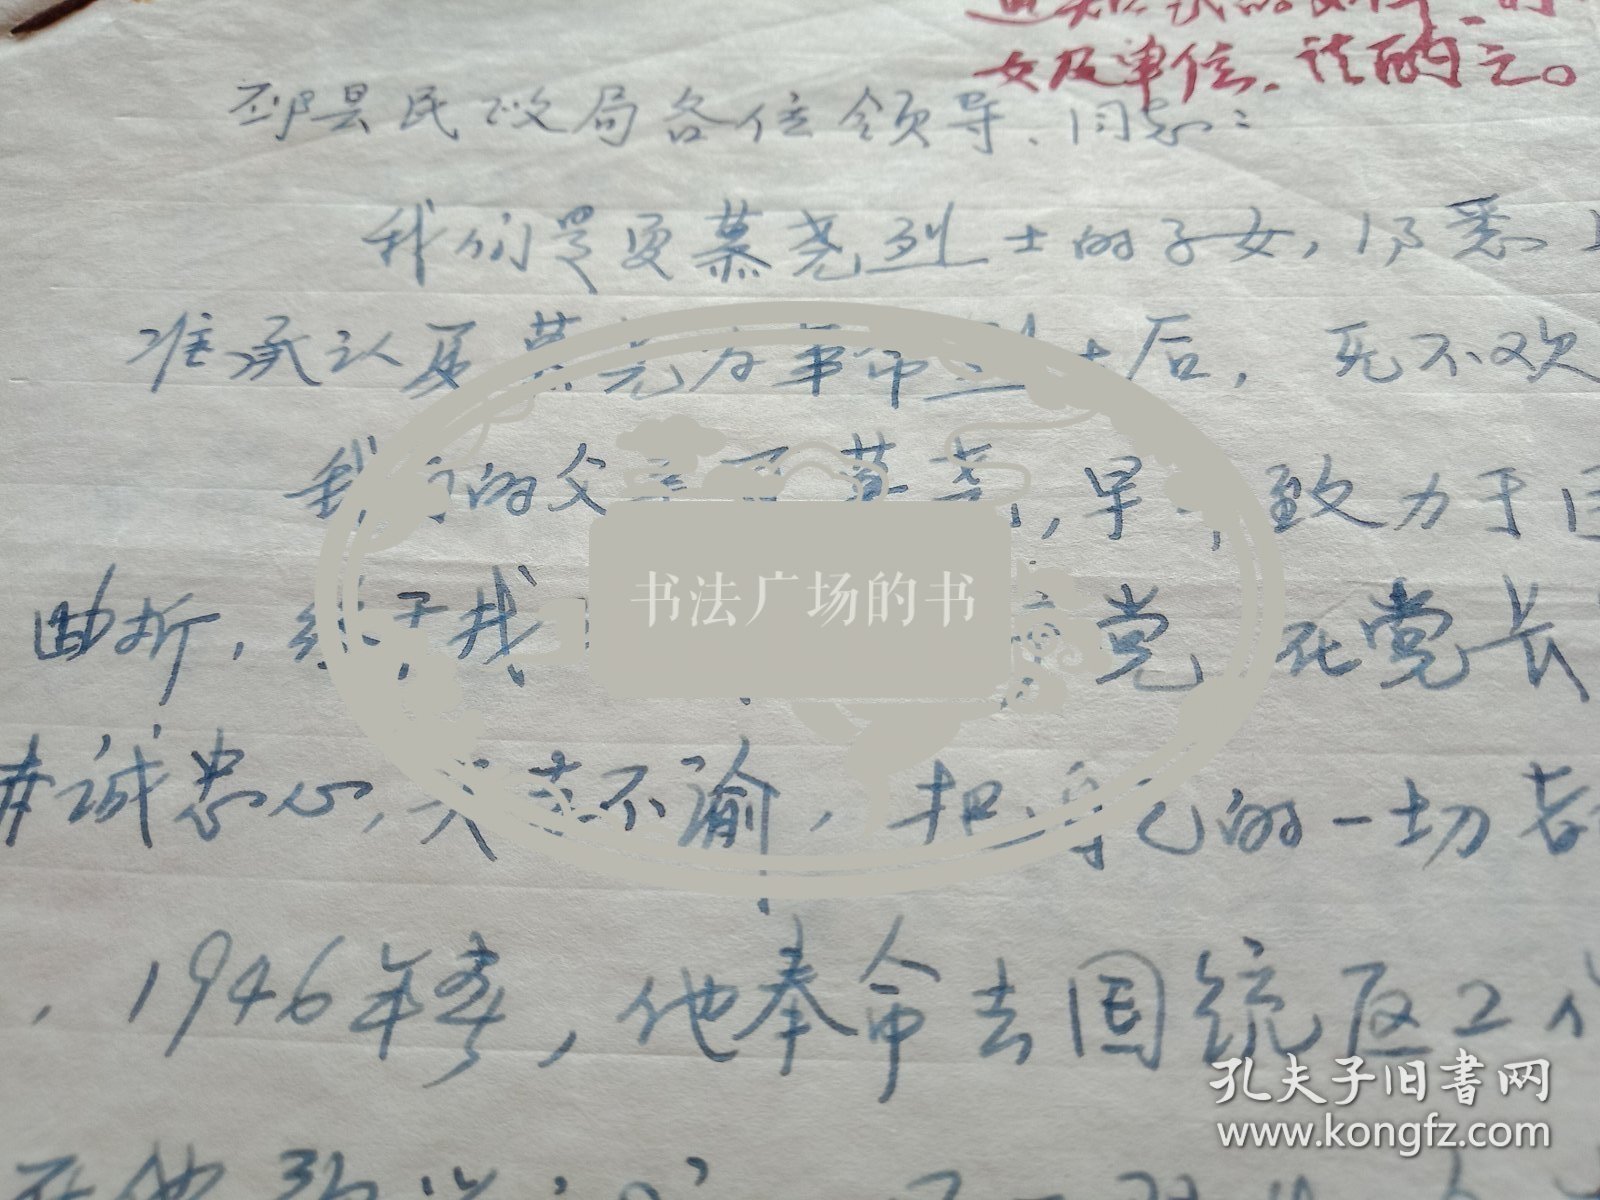 女及单位，请酌定。
邳县民政局各位领导、同志：
我们是夏慕尧烈士的子女，得悉
准承认夏慕尧为革命烈士后，无不欢
我们的父亲夏慕尧，早年致力于
曲折，终于找 党，在党长
赤诚忠心，矢志不渝，把自己的一切都
，1946年春，他奉命去国统区工作
书法广场的书
孔夫子旧书网
www.kongfz.com